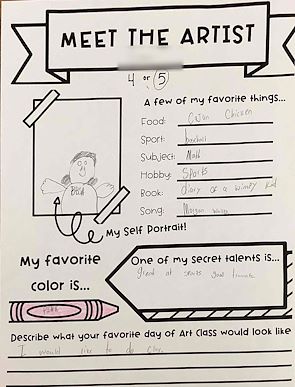 MEET THE ARTIST
4 or 5
A few of my favorite things...
Food: Cajun Chicken
Sport: baseball
Subject: Math
Hobby: Sports
Book: diary of a wimpy kid
Song: Morgan
My Self Portrait!
My favorite
color is...
One of my secret talents is...
great at sports good
Describe what your favorite day of Art Class would look like
I would like to do